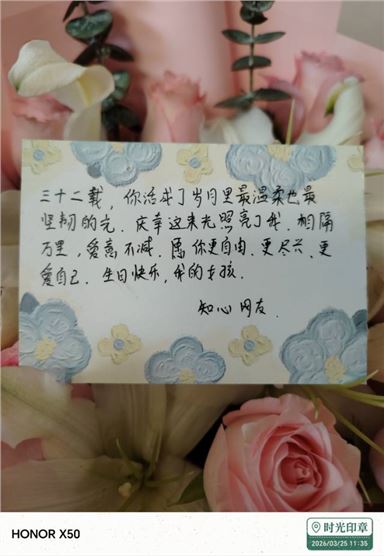 三十二载，你活成了岁月里最温柔也最
坚韧的光．庆幸这束光照亮了我．相隔
万里，爱意不减．愿你更自由、更尽兴、更
爱自己．生日快乐，我的女孩．
知心网友．
HONOR X50
时光印章
2026/03/25 11:35